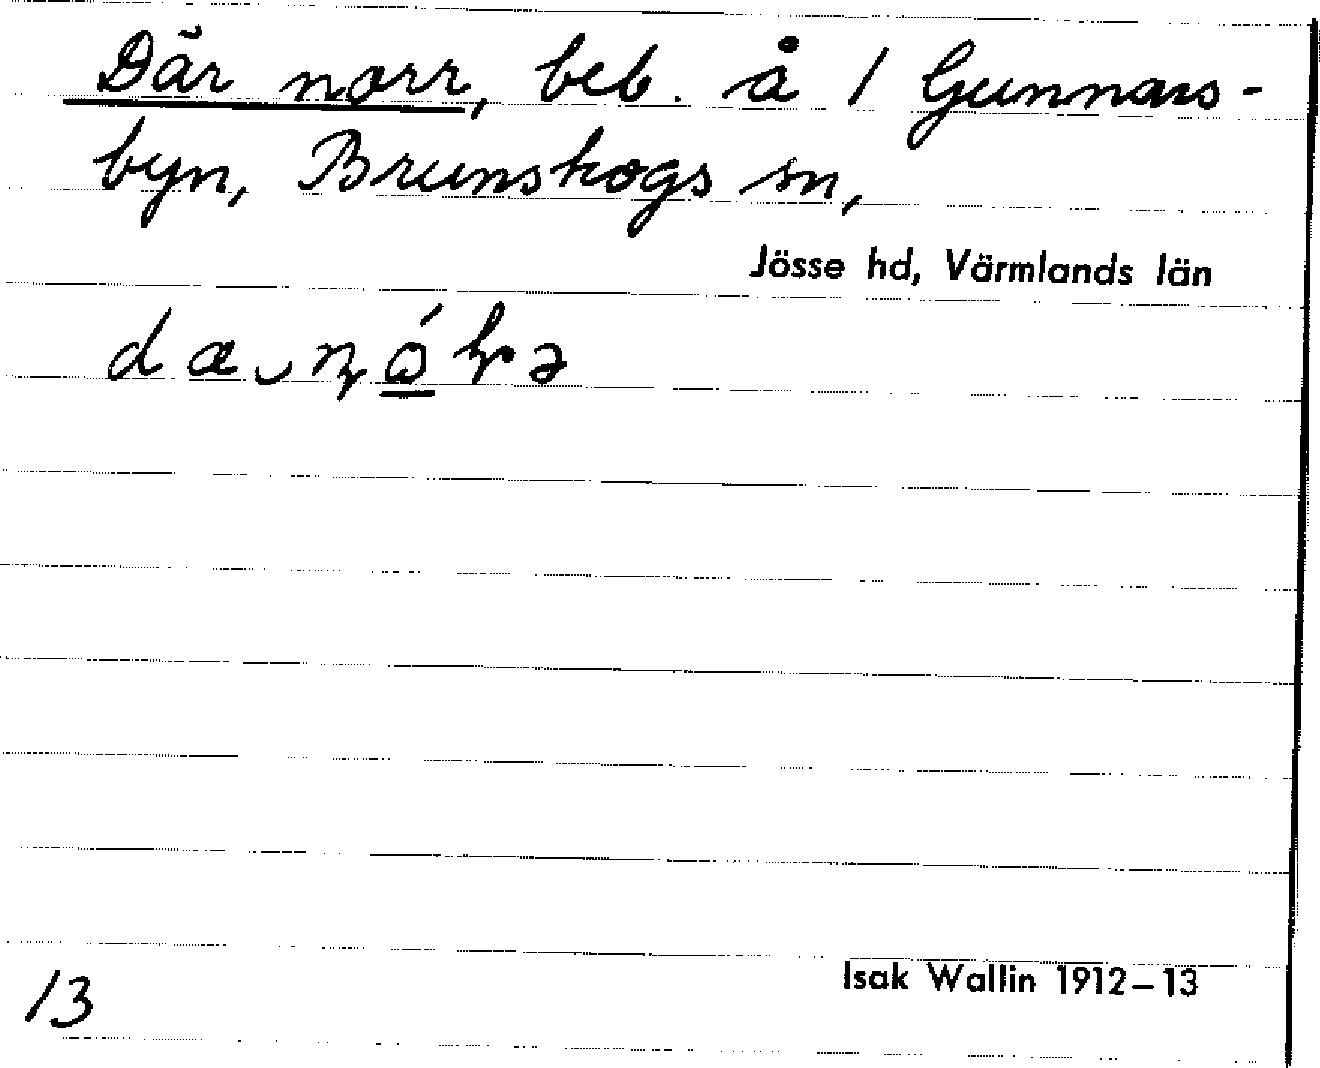 Där norr, beb. å 1 Gunnars-
byn, Brunskogs sn,
Jösse hd, Värmlands län
13
Isak Wallin 1912–13